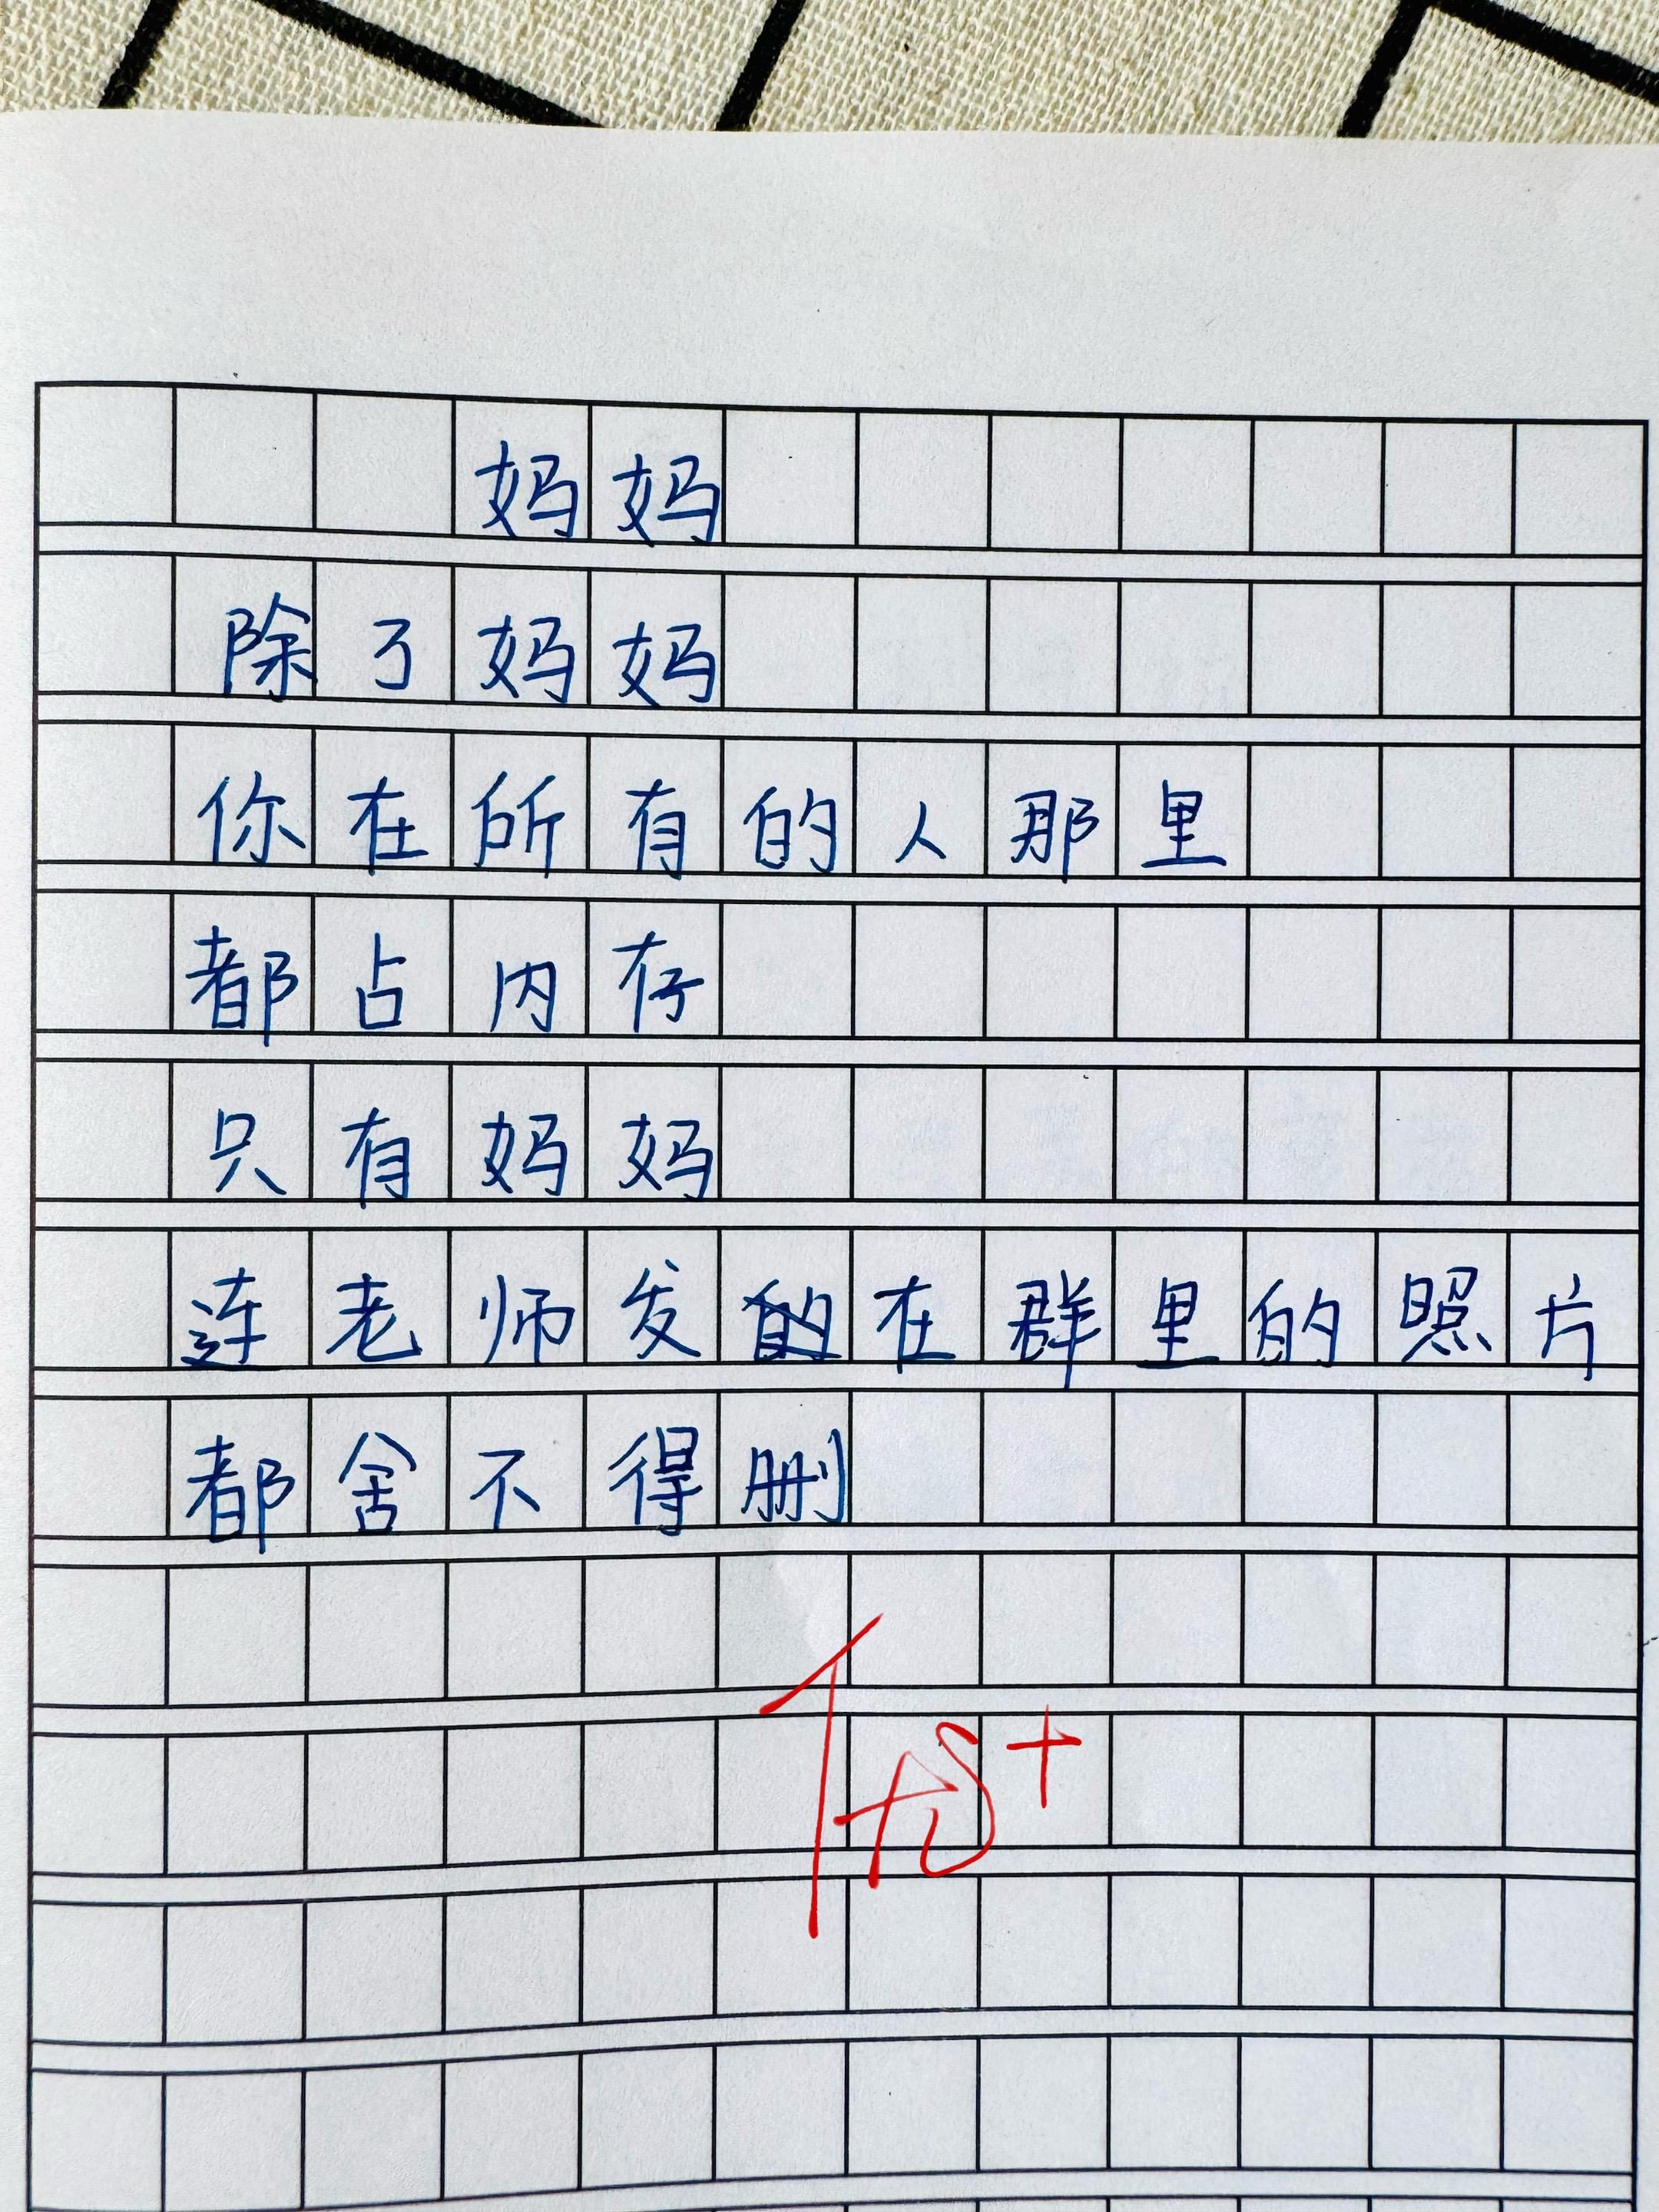 妈妈
除了妈妈
你在所有的人那里
都占内存
只有妈妈
连老师发在群里的照片
都舍不得删
优+